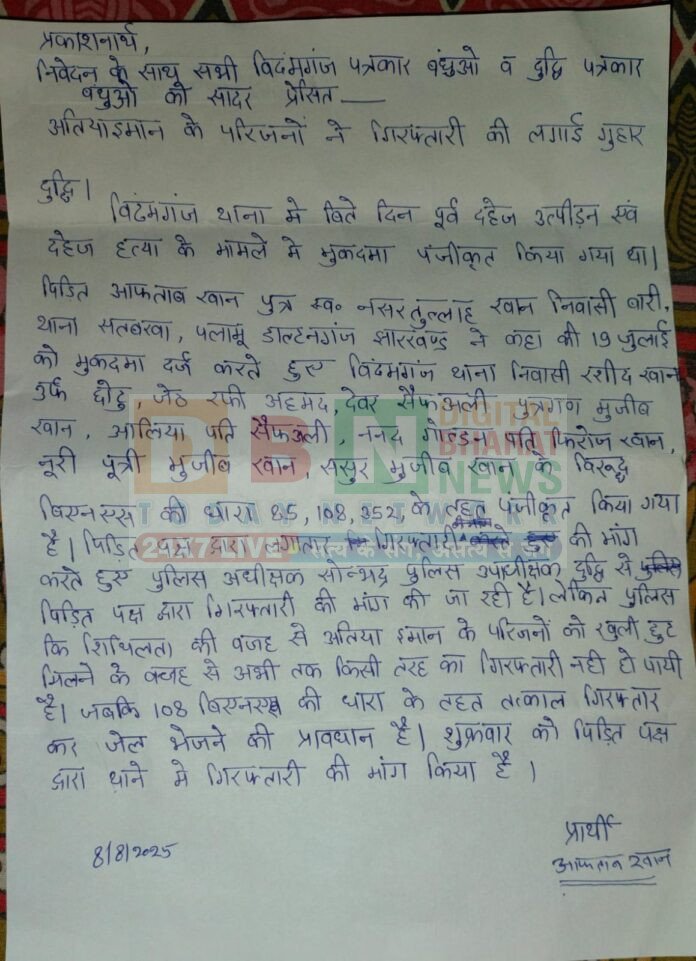 प्रकाशनार्थ,
निवेदन के साथ सभी विढमगंज पत्रकार बंधुओ व दुद्धि पत्रकार
बंधुओ को सादर प्रेसित —
अतियाइमान के परिजनों ने गिरफ्तारी की लगाई गुहार
दुद्धि।
विढमगंज थाना मे बिते दिन पूर्व दहेज उत्पीड़न एवं
दहेज हत्या के मामले मे मुकदमा पंजीकृत किया गया था।
पिडित आफताब खान पुत्र स्व॰ नसरतुल्लाह खान निवासी बारी,
थाना सतबरवा, पलामू डाल्टनगंज झारखण्ड ने कहा की 19 जुलाई
को मुकदमा दर्ज करते हुए विढमगंज थाना निवासी रशीद खान
उर्फ छोटु, जेठ रफी अहमद, देवर सैफअली पुत्रगण मुजीब
खान, आलिया पति सैफअली, ननद गोल्डन पति फिरोज खान,
नूरी पूत्री मुजीब खान, ससुर मुजीब खान के विरूद्ध
बिएनएस की धारा 85, 108, 352, के तहत पंजीकृत किया गया
है। पिडित पक्ष द्वारा लगातार गिरफ्तारी की मांग
करते हुए पुलिस अधीक्षक सोनभद्र पुलिस उपाधीक्षक दुद्धि से
पिड़ित पक्ष द्वारा गिरफ्तारी की मांग की जा रही है। लेकिन पुलिस
कि शिथिलता की वजह से अतिया इमान के परिजनों को खुली छुट
मिलने के वजह से अभी तक किसी तरह का गिरफ्तारी नही हो पायी
है। जबकि 108 बिएनएस की धारा के तहत तत्काल गिरफ्तार
कर जेल भेजने की प्रावधान है। शुक्रवार को पिड़ित पक्ष
द्वारा थाने मे गिरफ्तारी की मांग किया है।
प्रार्थी
आफताब खान
8/8/2025
DBN DIGITAL BHARAT NEWS
TODAY NETWORK
24x7 LIVE सत्य के संग, असत्य से जंग